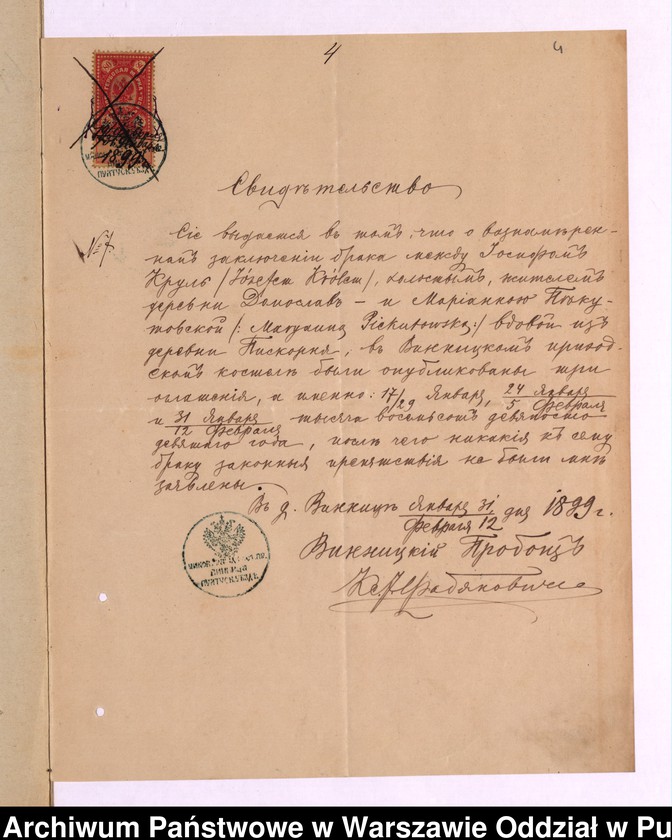 4
4
1899
ПУЛТУСК. УѢЗД.
Свидѣтельство
№ 7.
Сіе выдается въ томъ, что о вознамѣрен-
номъ заключеніи брака между Іосифомъ
Круль /Józefem Królem/, холостымъ, жителемъ
деревни Домославъ – и Маріанною Пѣку-
товской /: Maryanną Piekutowską :/ вдовой изъ
деревни Пискорня, въ Винницкомъ приход-
скомъ костелѣ были опубликованы три
оглашенія, а именно: 17/29 Января, 24 Января / 5 Февраля
и 31 Января / 12 Февраля тысяча восемьсотъ девяносто
девятаго года, послѣ чего никакія къ сему
браку законныя препятствія не были мнѣ
заявлены.
Въ д. Винницѣ Января 31 / Февраля 12 дня 1899 г.
Винницкій Пробощъ
ВИННИЦА
ПУЛТУСК. УѢЗД.
Archiwum Państwowe w Warszawie Oddział w Pu